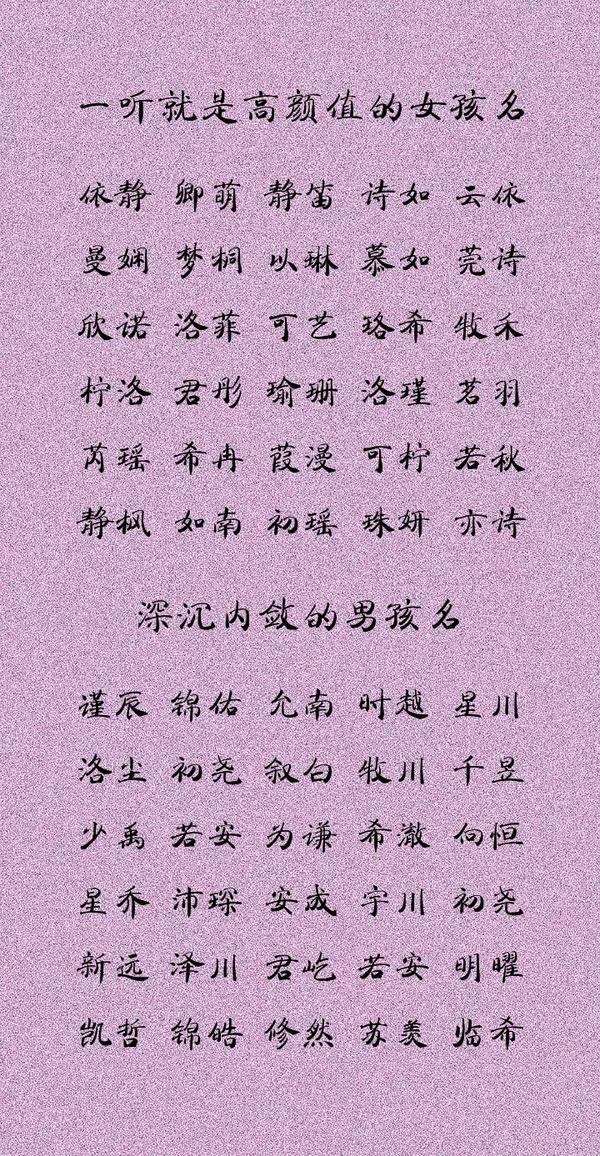 一听就是高颜值的女孩名
依静 卿萌 静笛 诗如 云依
曼娴 梦桐 以琳 慕如 莞诗
欣诺 洛菲 可艺 珞希 牧禾
柠洛 君彤 瑜珊 洛瑾 茗羽
芮瑶 希冉 葭漫 可柠 若秋
静枫 如南 初瑶 珠妍 亦诗
深沉内敛的男孩名
谨辰 锦佑 允南 时越 星川
洛尘 初尧 叙白 牧川 千昱
少禹 若安 为谦 希澈 向恒
星乔 沛琛 安成 宇川 初尧
新远 泽川 君屹 若安 明曜
凯哲 锦皓 修然 苏羡 临希